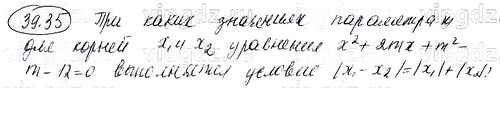 39.35 При каких значениях параметра m
для корней x₁ и x₂ уравнения x² + 2mx + m² -
m - 12 = 0 выполняется условие |x₁ - x₂| = |x₁| + |x₂|?